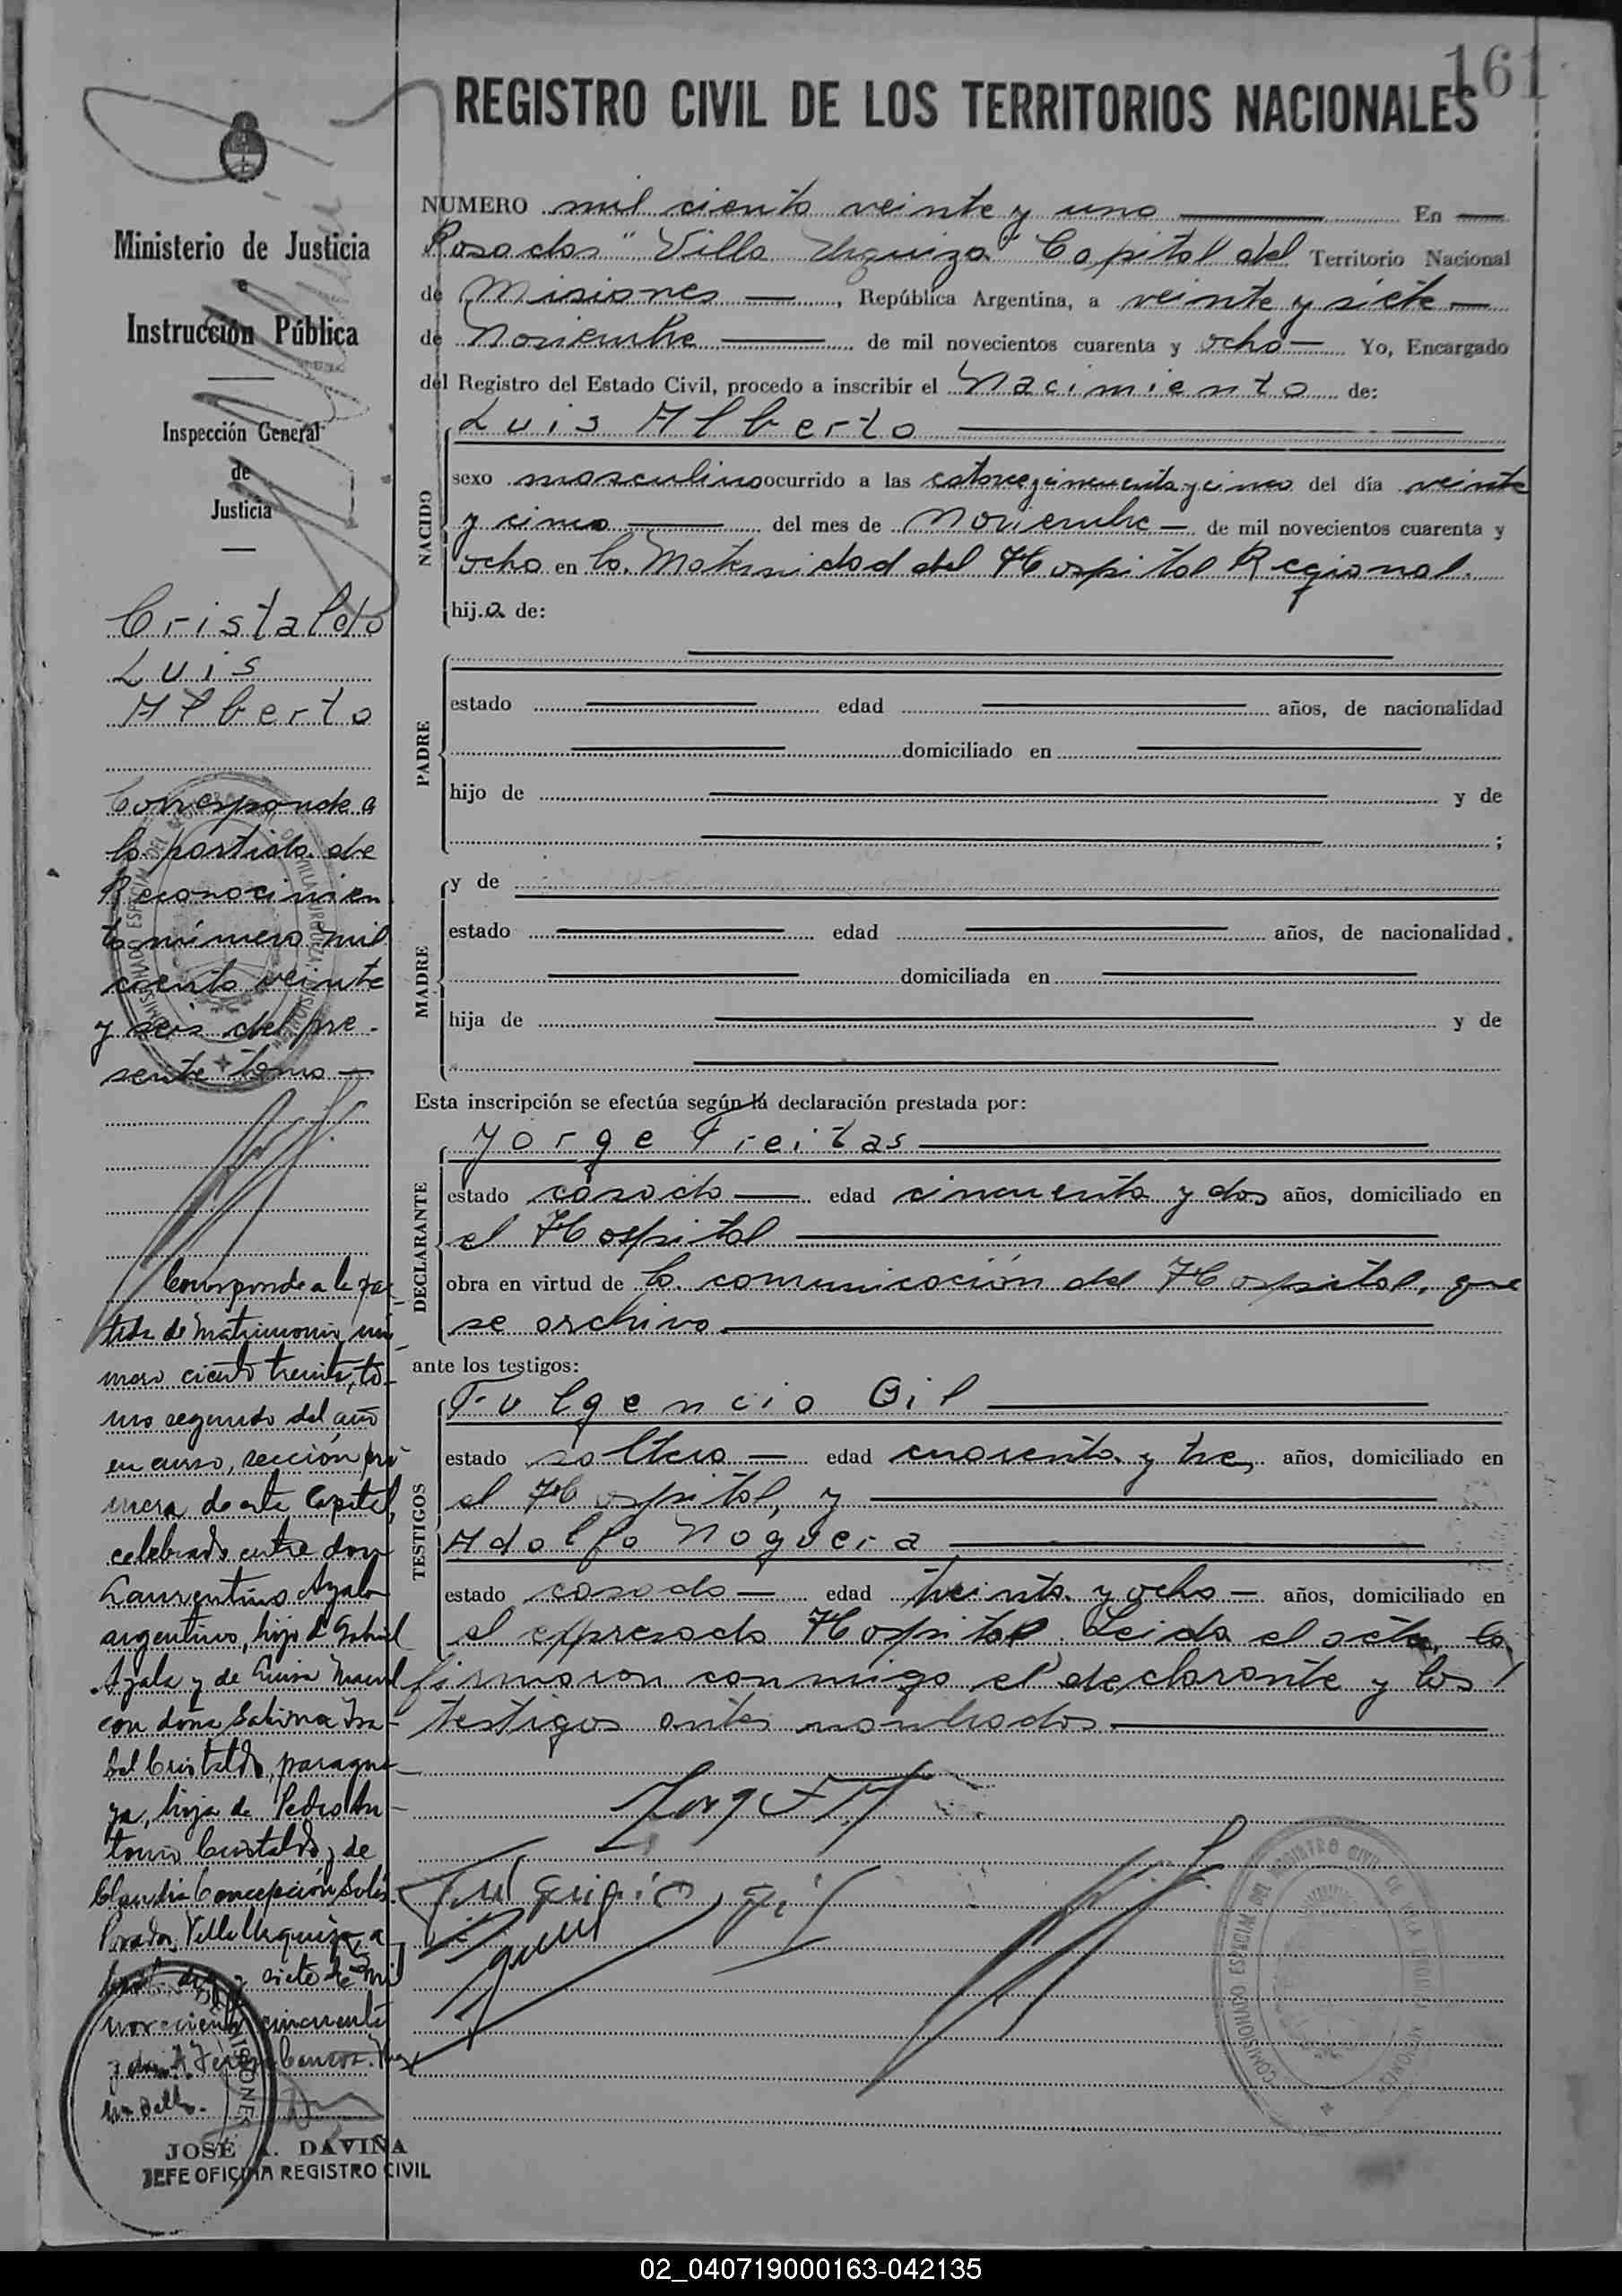 161
REGISTRO CIVIL DE LOS TERRITORIOS NACIONALES
Ministerio de Justicia
e
Instrucción Pública
Inspección General
de
Justicia
Cristaldo
Luis
Alberto
Corresponde a
la partida de
Reconocimien
to número mil
ciento veinte
y seis del pre-
sente tomo —
Corresponde a la par-
tida de matrimonio nú-
mero ciento treinta, to-
mo segundo del año
en curso, sección pri
mera de esta Capital,
celebrado entre don
Laurentino Ayala
argentino, hijo de Gabriel
Ayala y de
con doña Sabina Isa-
bel Cristaldo, paragua-
ya, hija de Pedro An-
tonio Cristaldo y de
Claudia Concepción Solís
Posadas, Villa Urquiza, a
y siete de mil
novecientos cincuenta
JOSÉ A. DAVIÑA
JEFE OFICINA REGISTRO CIVIL
NUMERO mil ciento veinte y uno — En —
Posadas "Villa Urquiza" Capital del Territorio Nacional
de Misiones —, República Argentina, a veinte y siete —
de Noviembre — de mil novecientos cuarenta y ocho — Yo, Encargado
del Registro del Estado Civil, procedo a inscribir el Nacimiento de:
Luis Alberto —
NACIDO
sexo masculino ocurrido a las catorce y cincuenta y cinco del día veinte
y cinco — del mes de Noviembre — de mil novecientos cuarenta y
ocho en la Maternidad del Hospital Regional.
hij.o de:
PADRE
estado — edad — años, de nacionalidad
— domiciliado en —
hijo de — y de
— ;
MADRE
y de
estado — edad — años, de nacionalidad
— domiciliada en —
hija de — y de
Esta inscripción se efectúa según la declaración prestada por:
DECLARANTE
Jorge Freitas —
estado casado — edad cincuenta y dos años, domiciliado en
el Hospital —
obra en virtud de la comunicación del Hospital, que
se archiva. —
ante los testigos:
TESTIGOS
Fulgencio Gil —
estado soltero — edad cuarenta y tres años, domiciliado en
el Hospital, y —
Adolfo Noguera —
estado casado — edad treinta y ocho — años, domiciliado en
el expresado Hospital. Leida el acta, la
firmaron conmigo el declarante y los
testigos antes nombrados —
COMISIONADO ESPECIAL DEL REGISTRO CIVIL DE VILLA URQUIZA
02_040719000163-042135